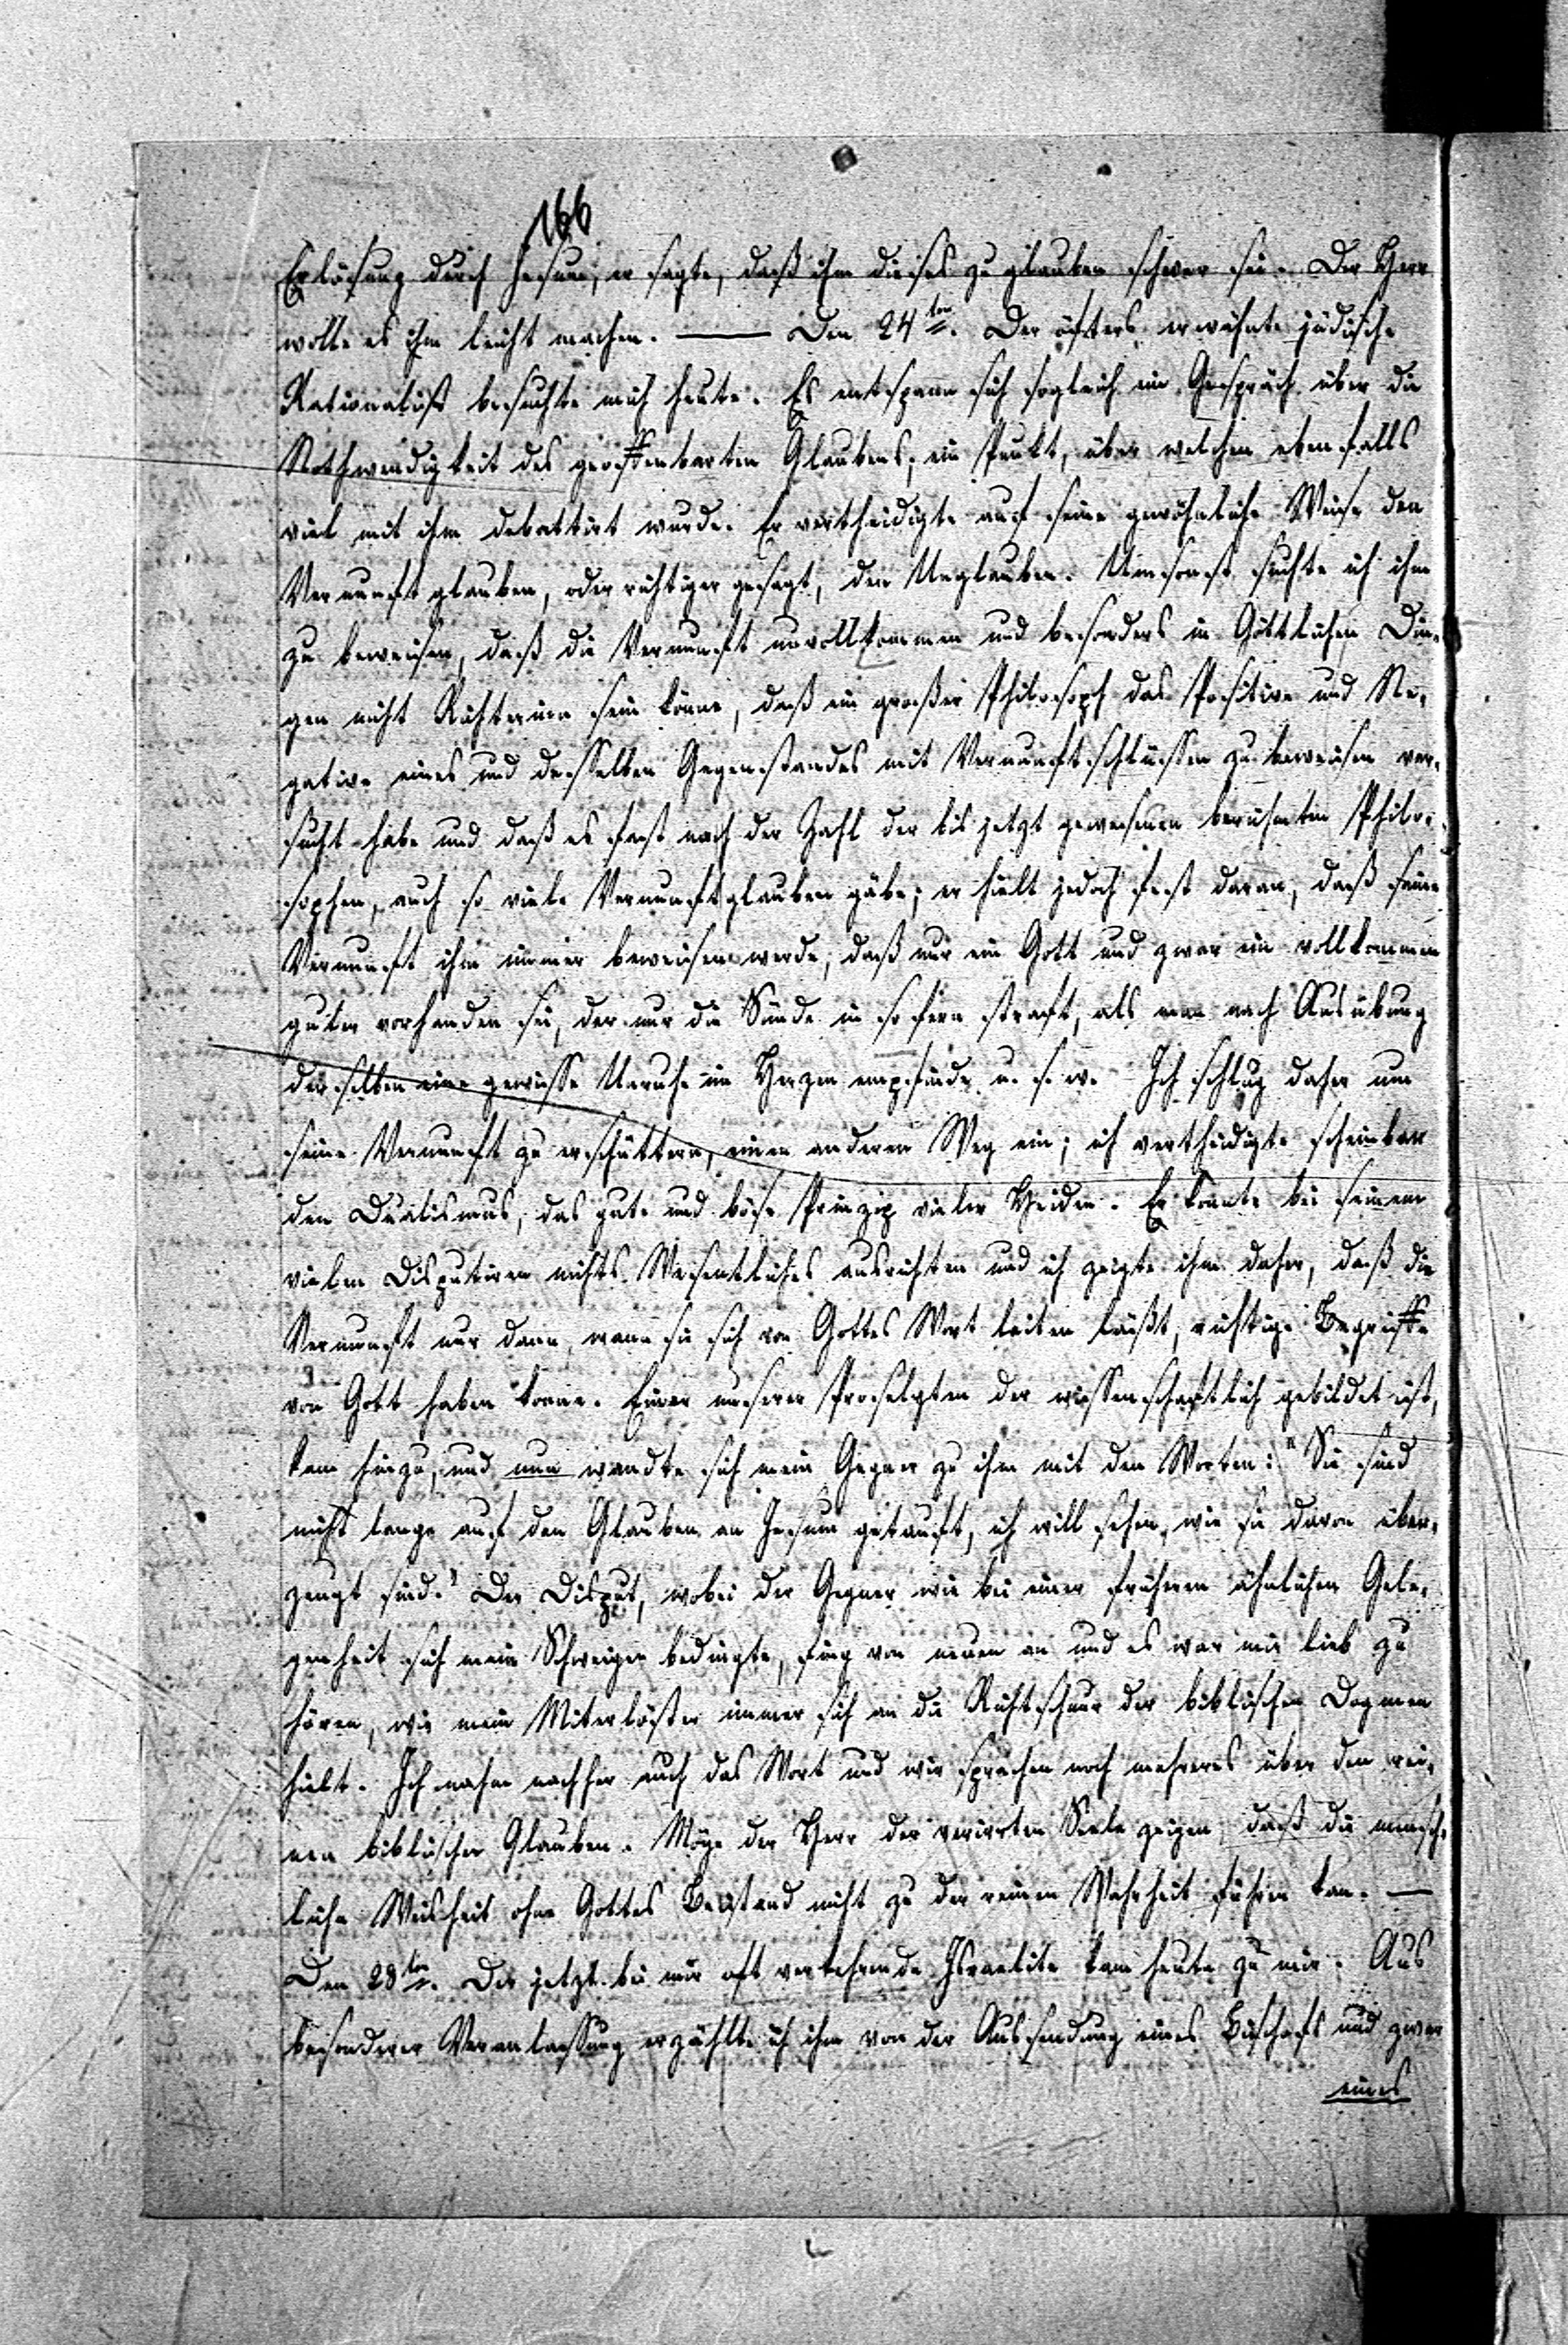 166
Erlösung durch Jesum, er sagte, daß ihm dieses zu glauben schwer sei. Der Herr
wolle es ihm leicht machen. — Den 24ten. Der öfters erwähnte jüdische
Rationalist besuchte mich heute. Es entspann sich sogleich ein Gespräch über die
Nothwendigkeit des geoffenbarten Glaubens, ein Punkt, über welchen ebenfalls
viel mit ihm debattirt wurde. Er vertheidigte auf seine gewöhnliche Weise den
Vernunftglauben, oder richtiger gesagt, den Unglauben. Umsonst suchte ich ihm
zu beweisen, daß die Vernunft unvollkommen und besonders in Göttlichen Din-
gen nicht Richterinn sein könne, daß ein großer Philosoph das Positive und Ne-
gative eines und desselben Gegenstandes mit Vernunftschlüssen zu beweisen ver-
sucht habe und daß es fast nach der Zahl der bis jetzt gewesenen berühmten Philo-
sophen, auch so viele Vernunftglauben gäbe; er hielt jedoch fest daran, daß seine
Vernunft ihm immer beweisen werde, daß nur ein Gott und zwar ein vollkommen
guter vorhanden sei, der nur die Sünde in sofern straft, als man nach Ausübung
derselben eine gewisse Unruhe im Herzen empfinde u. s. w. Ich schlug daher um
seine Vernunft zu erschüttern, einen anderen Weg ein; ich vertheidigte scheinbar
den Dualismus, das gute und böse Prinzip vieler Heiden. Er konnte bei seinem
vielen Disputiren nichts Wesentliches ausrichten und ich zeigte ihm daher, daß die
Vernunft nur dann, wann sie sich von Gottes Wort leiten läßt, richtige Begriffe
von Gott haben könne. Einer unserer Proselyten der wissenschaftlich gebildet ist,
kam hinzu, und nun wandte sich mein Gegner zu ihm mit den Worten: "Sie sind
nicht lange auf den Glauben an Jesum getauft, ich will sehen, wie sie davon über-
zeugt sind." Der Disput, wobei der Gegner wie bei einer frühern ähnlichen Gele-
genheit sich mein Schweigen bedingte, fing von neuen an und es war mir lieb zu
hören, wie mein Miterlöster immer sich an die Richtschnur der biblischen Dogmen
hielt. Ich nahm nachher auch das Wort und wir sprachen noch mehreres über den rei-
nen biblischen Glauben. Möge der Herr der verirrten Seele zeigen, daß die mensch-
liche Weisheit ohne Gottes Beistand nicht zu der reinen Wahrheit führen kan. —
Den 28ten. Der jetzt bei mir oft verkehrende Israelite kam heute zu mir. Aus
besonderer Veranlassung erzählte ich ihm von der Aussendung eines Bischofs und zwar
eines